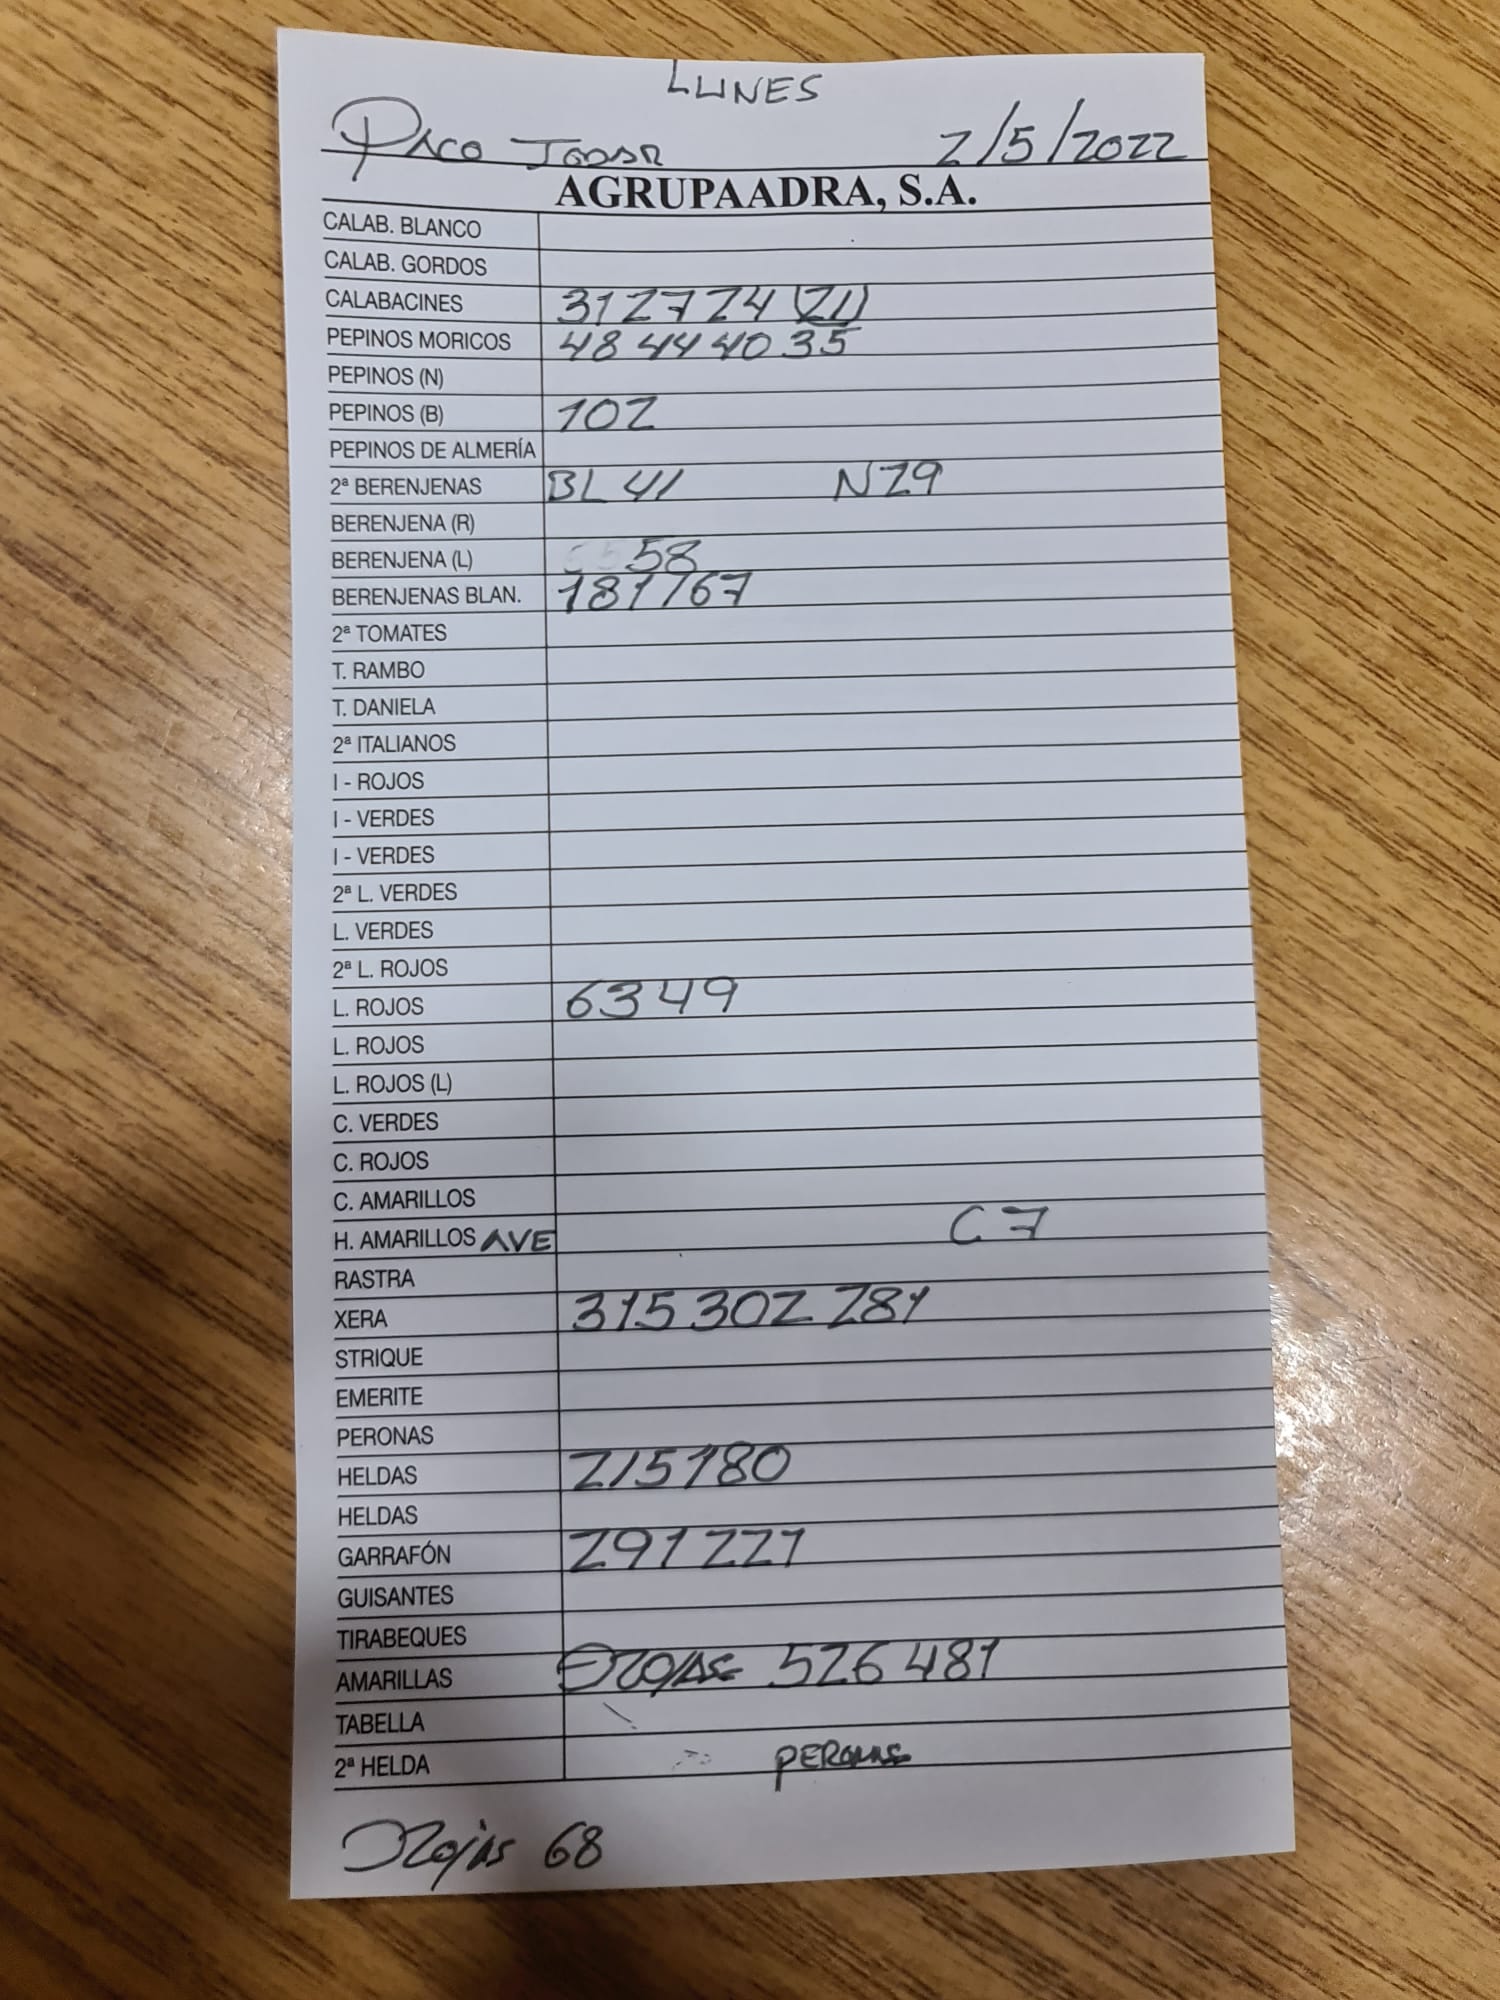 LUNES
PACO 2/5/2022
AGRUPAADRA, S.A.
CALAB. BLANCO
CALAB. GORDOS
CALABACINES 31 27 24 (21)
PEPINOS MORICOS 48 44 40 35
PEPINOS (N)
PEPINOS (B) 102
PEPINOS DE ALMERÍA
2ª BERENJENAS BL 41 N29
BERENJENA (R)
BERENJENA (L) 58
BERENJENAS BLAN. 181 167
2ª TOMATES
T. RAMBO
T. DANIELA
2ª ITALIANOS
I - ROJOS
I - VERDES
I - VERDES
2ª L. VERDES
L. VERDES
2ª L. ROJOS
L. ROJOS 63 49
L. ROJOS
L. ROJOS (L)
C. VERDES
C. ROJOS
C. AMARILLOS
H. AMARILLOS AVE C7
RASTRA
XERA 315 302 281
STRIQUE
EMERITE
PERONAS
HELDAS 215 180
HELDAS
GARRAFÓN 291 221
GUISANTES
TIRABEQUES
AMARILLAS 526 481
TABELLA
2ª HELDA PERONAS
ROJAS 68